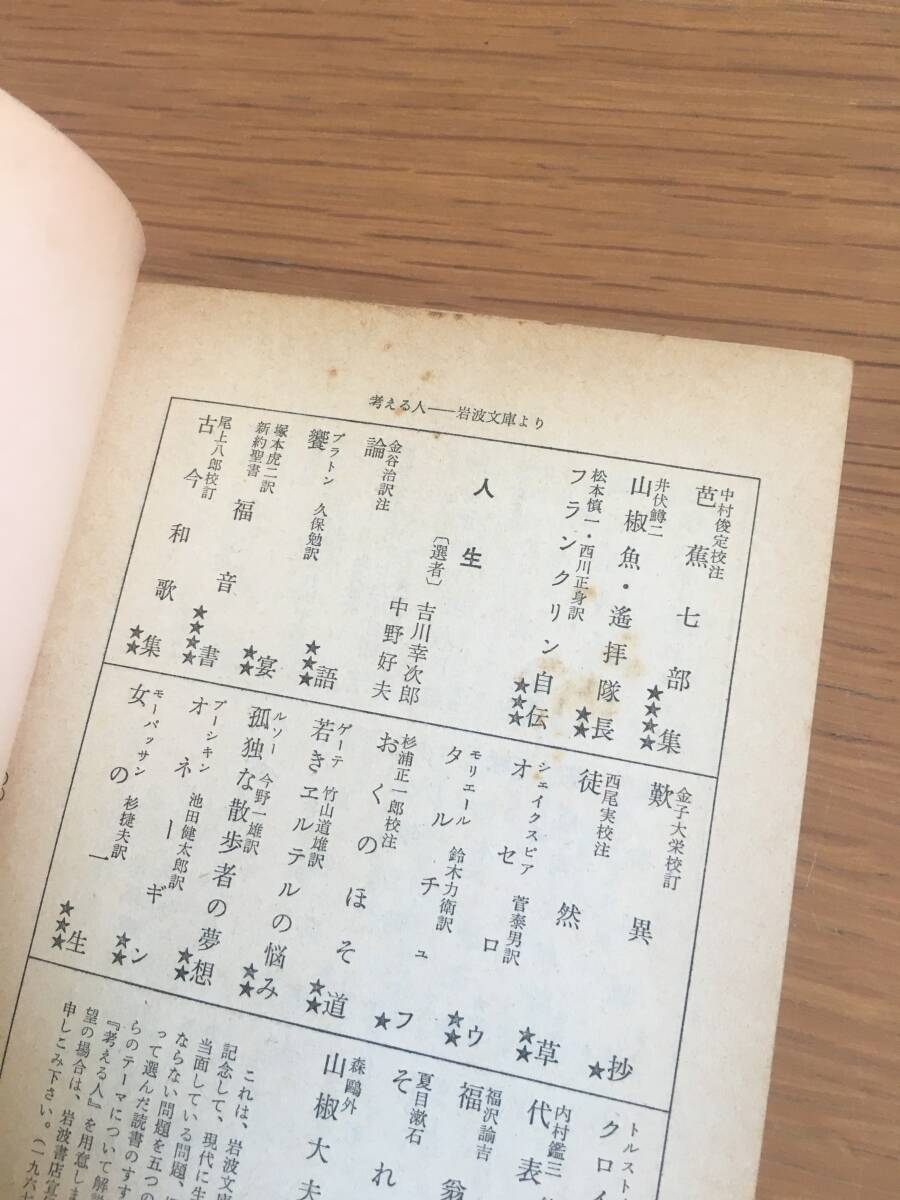 考える人──岩波文庫より
中村俊定校注
芭蕉七部集 ★★★★
井伏鱒二
山椒魚・遙拝隊長 ★★
松本慎一・西川正身訳
フランクリン自伝 ★★★
人生
〔選者〕 吉川幸次郎
中野好夫
金谷治訳注
論語 ★★★
プラトン 久保勉訳
饗宴 ★★
塚本虎二訳
新約聖書 福音書 ★★★★
尾上八郎校訂
古今和歌集 ★★
金子大栄校訂
歎異抄 ★
西尾実校注
徒然草 ★★
シェイクスピア 菅泰男訳
オセロウ ★★
モリエール 鈴木力衛訳
タルチュフ ★
杉浦正一郎校注
おくのほそ道 ★★
ゲーテ 竹山道雄訳
若きヱルテルの悩み ★★
ルソー 今野一雄訳
孤独な散歩者の夢想 ★★
プーシキン 池田健太郎訳
オネーギン ★★
モーパッサン 杉捷夫訳
女の一生 ★★★
トルスト
クロイ
内村鑑三
代表
福沢諭吉
福翁
夏目漱石
それ
森鷗外
山椒大夫
これは、岩波文庫
記念して、現代に生
当面している問題、
ならない問題を五つの
って選んだ読書のすす
らのテーマについて解説
『考える人』を用意しま
望の場合は、岩波書店宣
申しこみ下さい。（一九六七